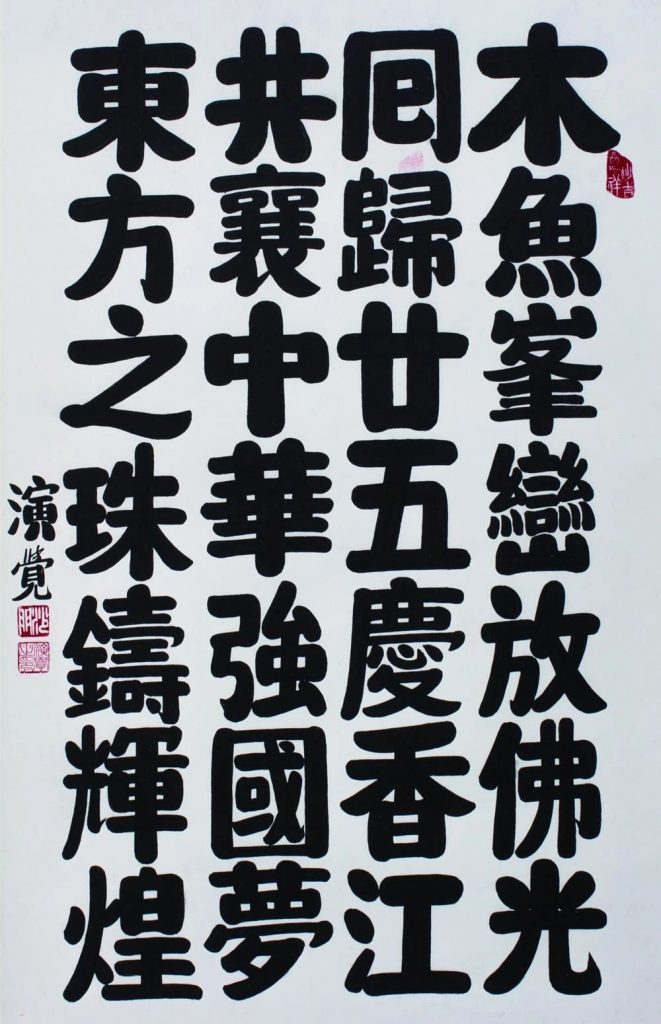 木魚峯巒放佛光
囘歸廿五慶香江
共襄中華強國夢
東方之珠鑄輝煌
演覺